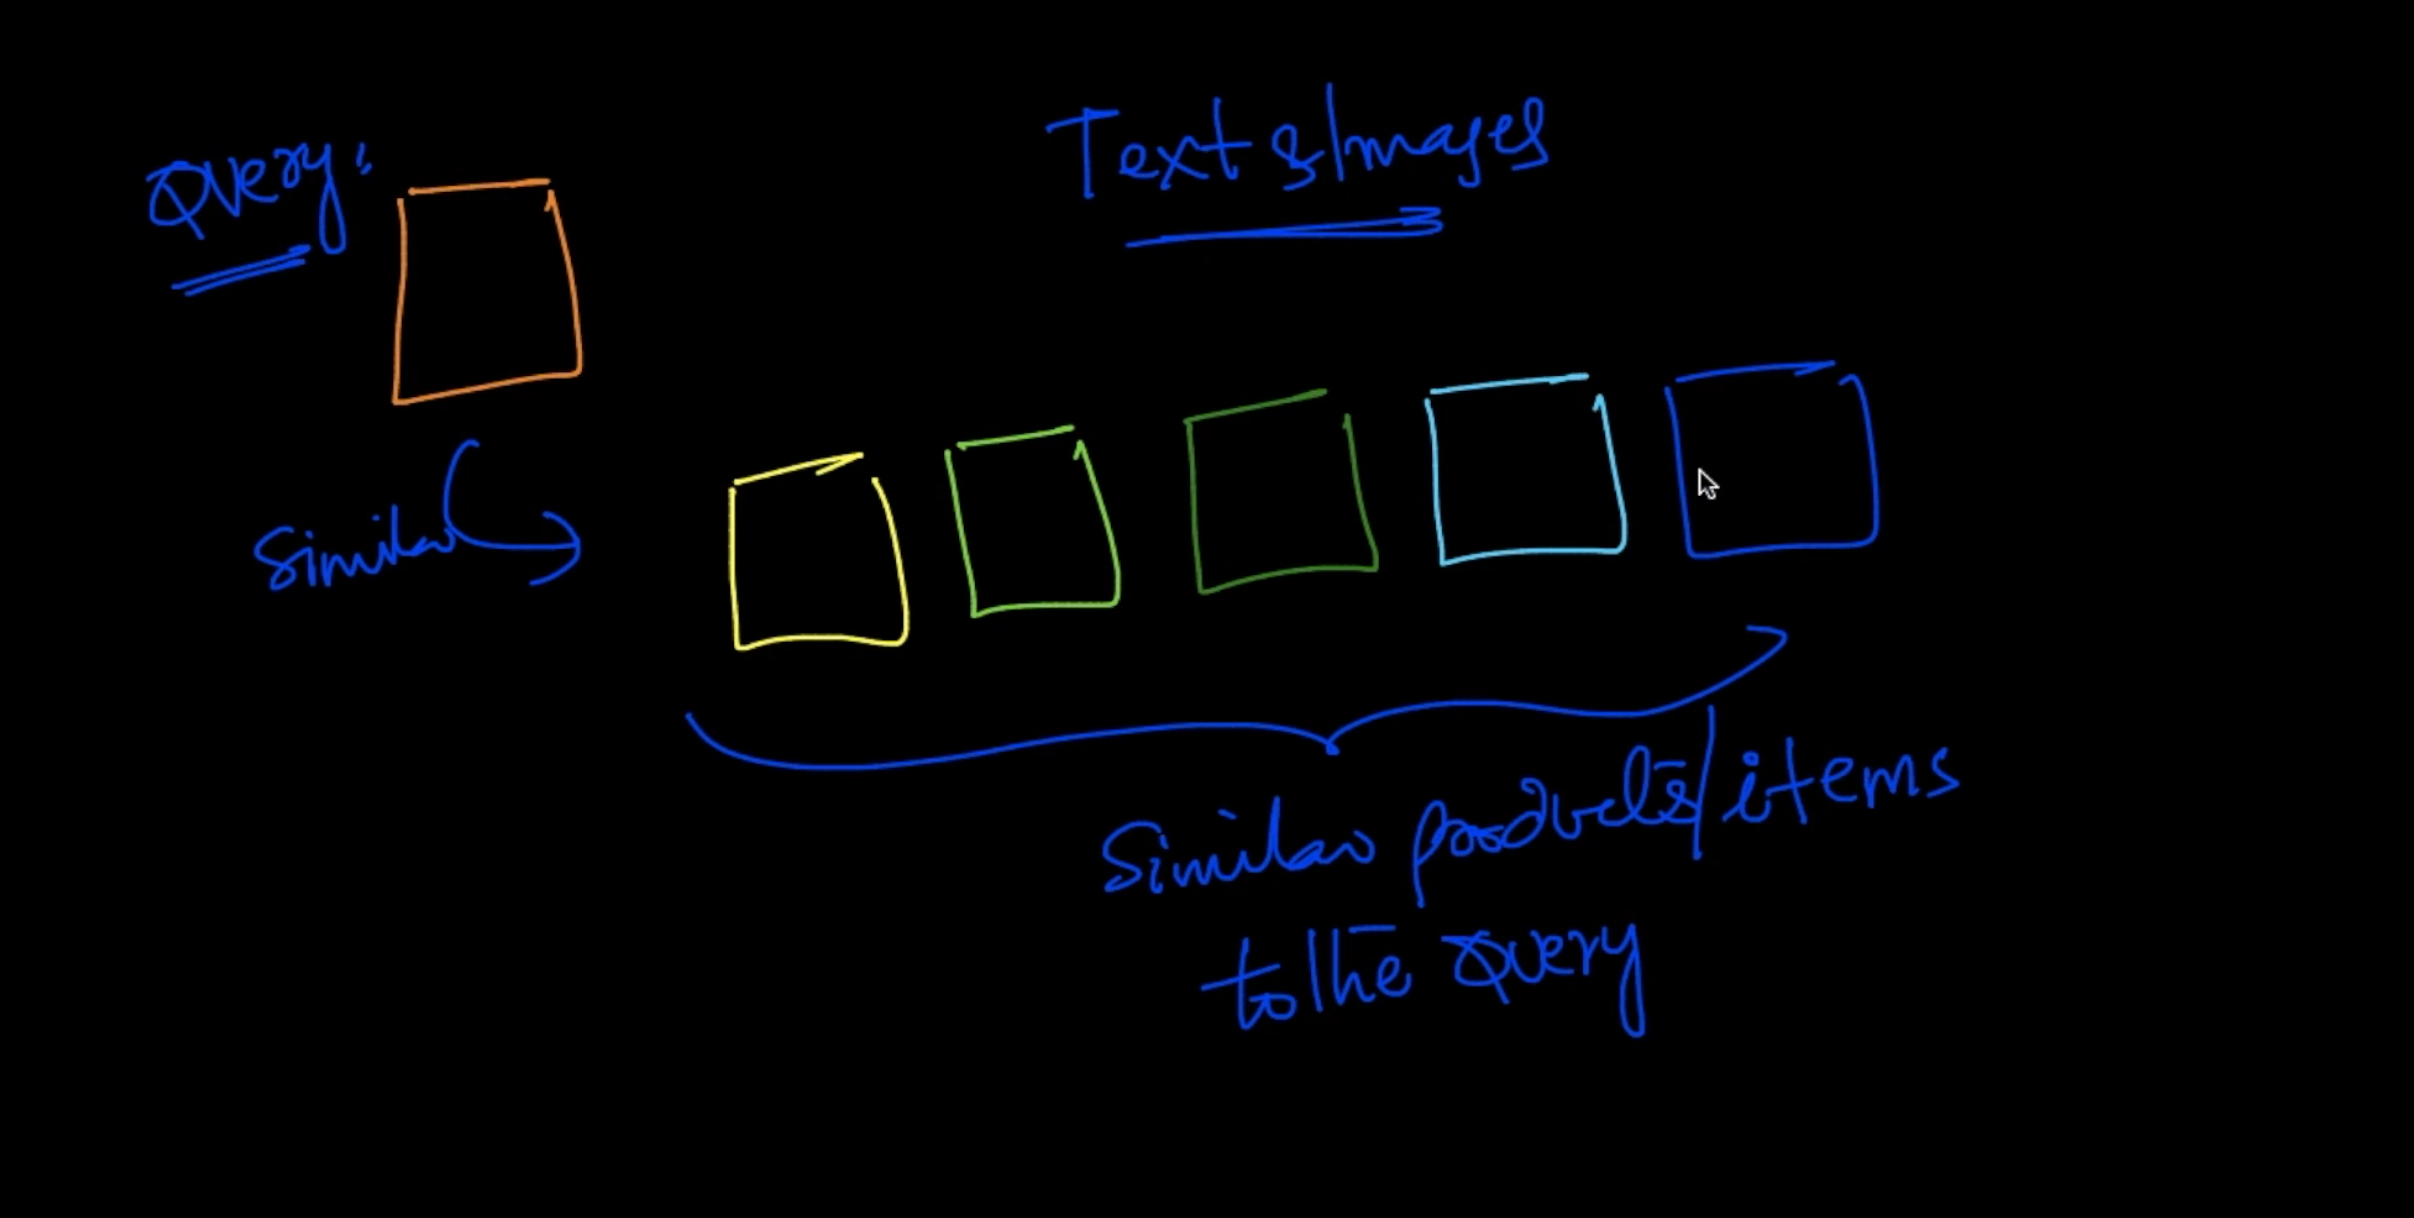 Query:
Text & Images
Similar
Similar products/items
to the Query